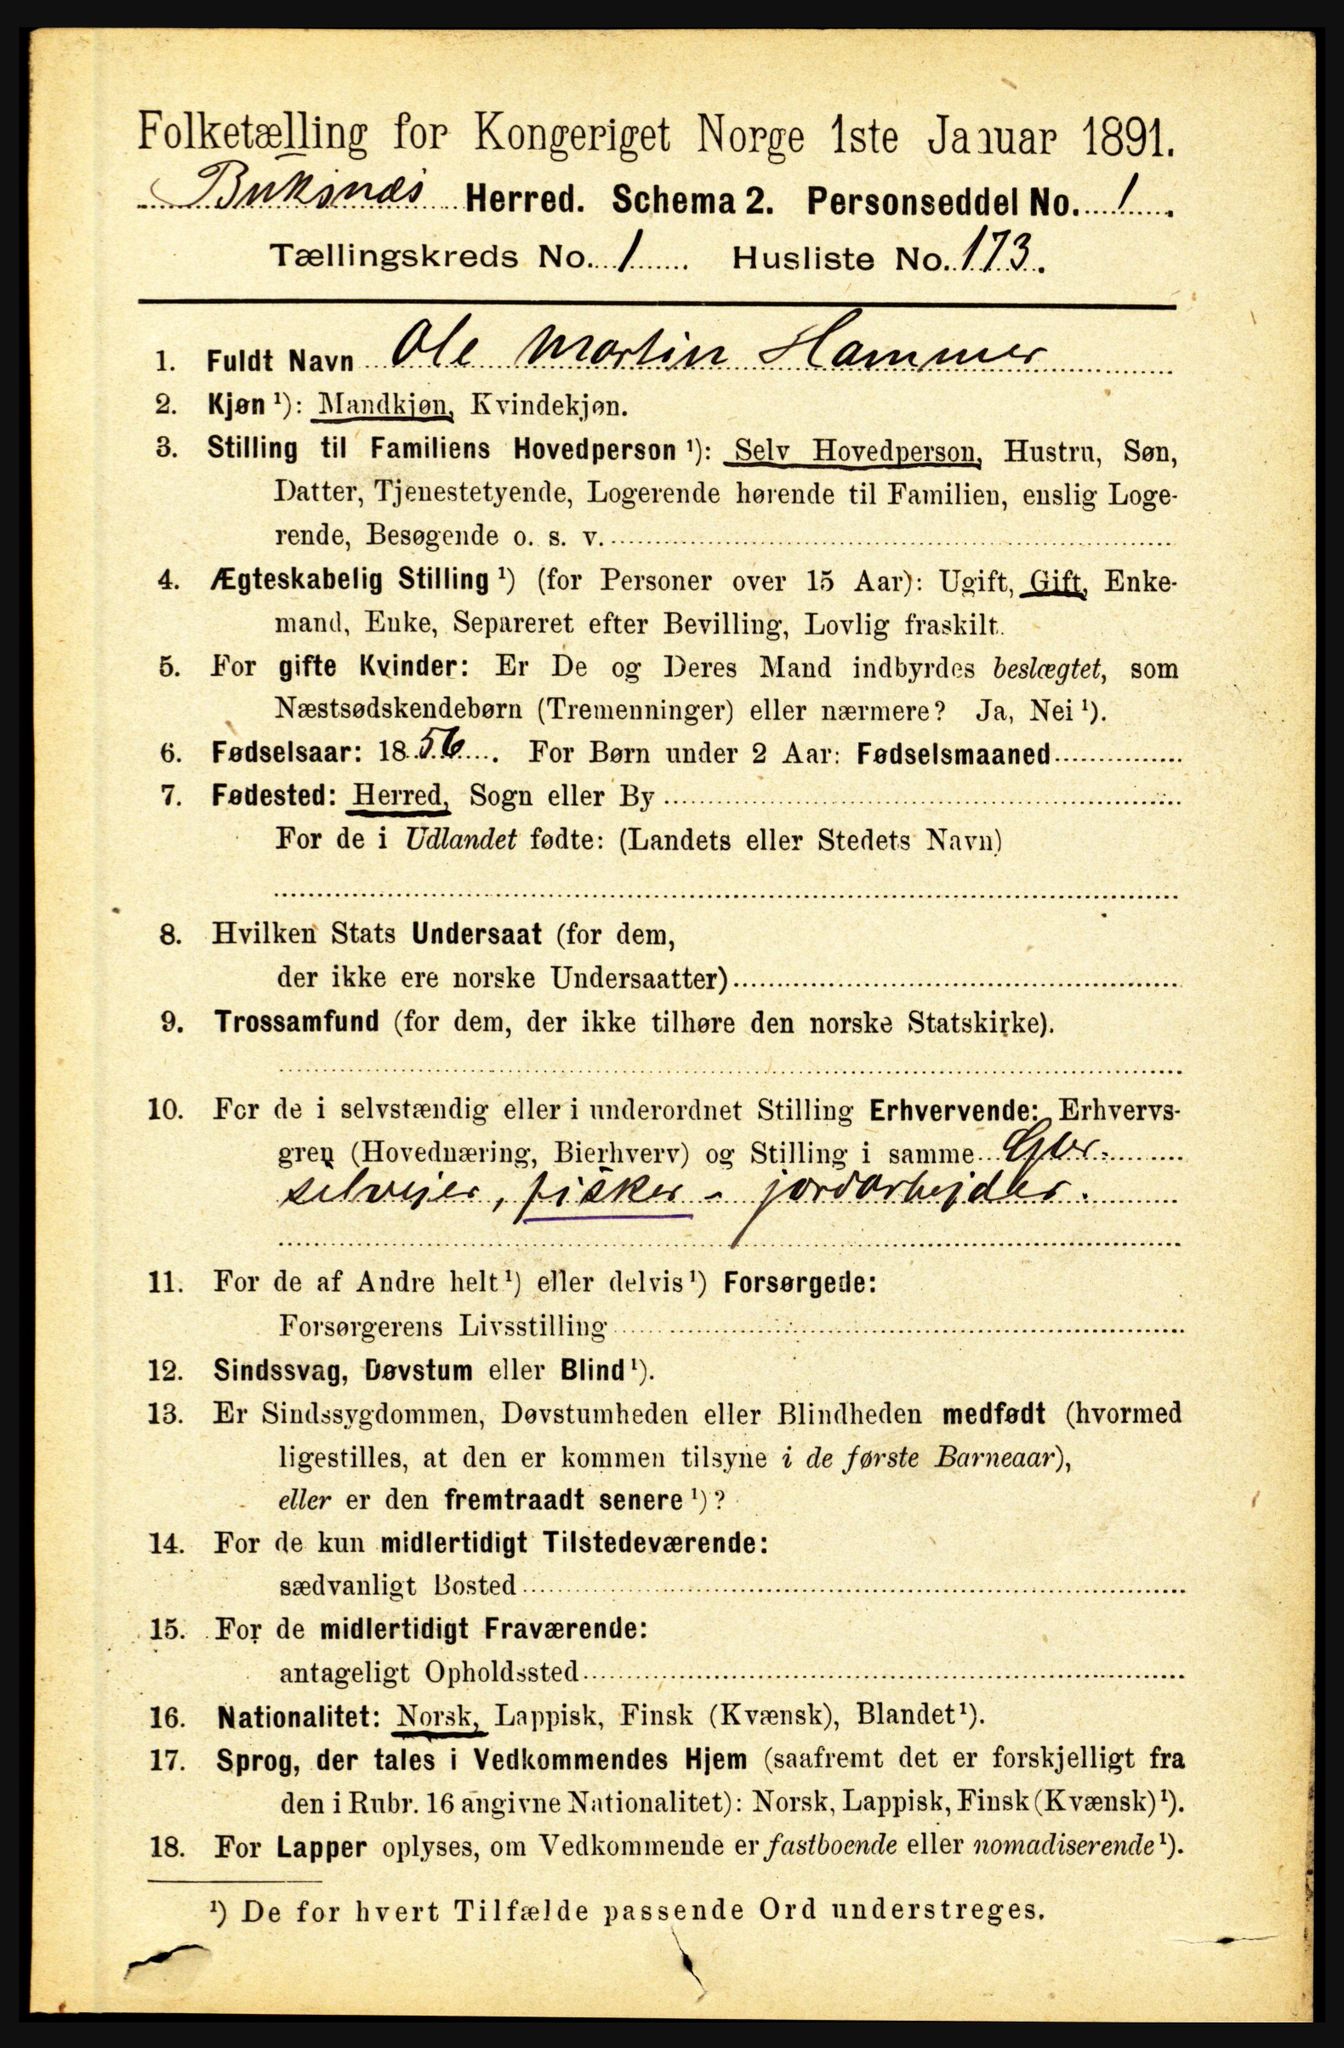 Folketælling for Kongeriget Norge 1ste Januar 1891.
Buksnæs Herred. Schema 2. Personseddel No. 1.
Tællingskreds No. 1 Husliste No. 173.
1. Fuldt Navn Ole Martin Hammer
2. Kjøn ¹): Mandkjøn, Kvindekjøn.
3. Stilling til Familiens Hovedperson ¹): Selv Hovedperson, Hustru, Søn,
Datter, Tjenestetyende, Logerende hørende til Familien, enslig Loge-
rende, Besøgende o. s. v.
4. Ægteskabelig Stilling ¹) (for Personer over 15 Aar): Ugift, Gift, Enke-
mand, Enke, Separeret efter Bevilling, Lovlig fraskilt.
5. For gifte Kvinder: Er De og Deres Mand indbyrdes beslægtet, som
Næstsødskendebørn (Tremenninger) eller nærmere? Ja, Nei ¹).
6. Fødselsaar: 1856. For Børn under 2 Aar: Fødselsmaaned
7. Fødested: Herred, Sogn eller By
For de i Udlandet fødte: (Landets eller Stedets Navn)
8. Hvilken Stats Undersaat (for dem,
der ikke ere norske Undersaatter)
9. Trossamfund (for dem, der ikke tilhøre den norske Statskirke).
10. For de i selvstændig eller i underordnet Stilling Erhvervende: Erhvervs-
gren (Hovednæring, Bierhverv) og Stilling i samme Gbr.
selvejer, fisker - jordarbejder.
11. For de af Andre helt ¹) eller delvis ¹) Forsørgede:
Forsørgerens Livsstilling
12. Sindssvag, Døvstum eller Blind ¹).
13. Er Sindssygdommen, Døvstumheden eller Blindheden medfødt (hvormed
ligestilles, at den er kommen tilsyne i de første Barneaar),
eller er den fremtraadt senere ¹)?
14. For de kun midlertidigt Tilstedeværende:
sædvanligt Bosted
15. For de midlertidigt Fraværende:
antageligt Opholdssted
16. Nationalitet: Norsk, Lappisk, Finsk (Kvænsk), Blandet ¹).
17. Sprog, der tales i Vedkommendes Hjem (saafremt det er forskjelligt fra
den i Rubr. 16 angivne Nationalitet): Norsk, Lappisk, Finsk (Kvænsk) ¹).
18. For Lapper oplyses, om Vedkommende er fastboende eller nomadiserende ¹).
¹) De for hvert Tilfælde passende Ord understreges.